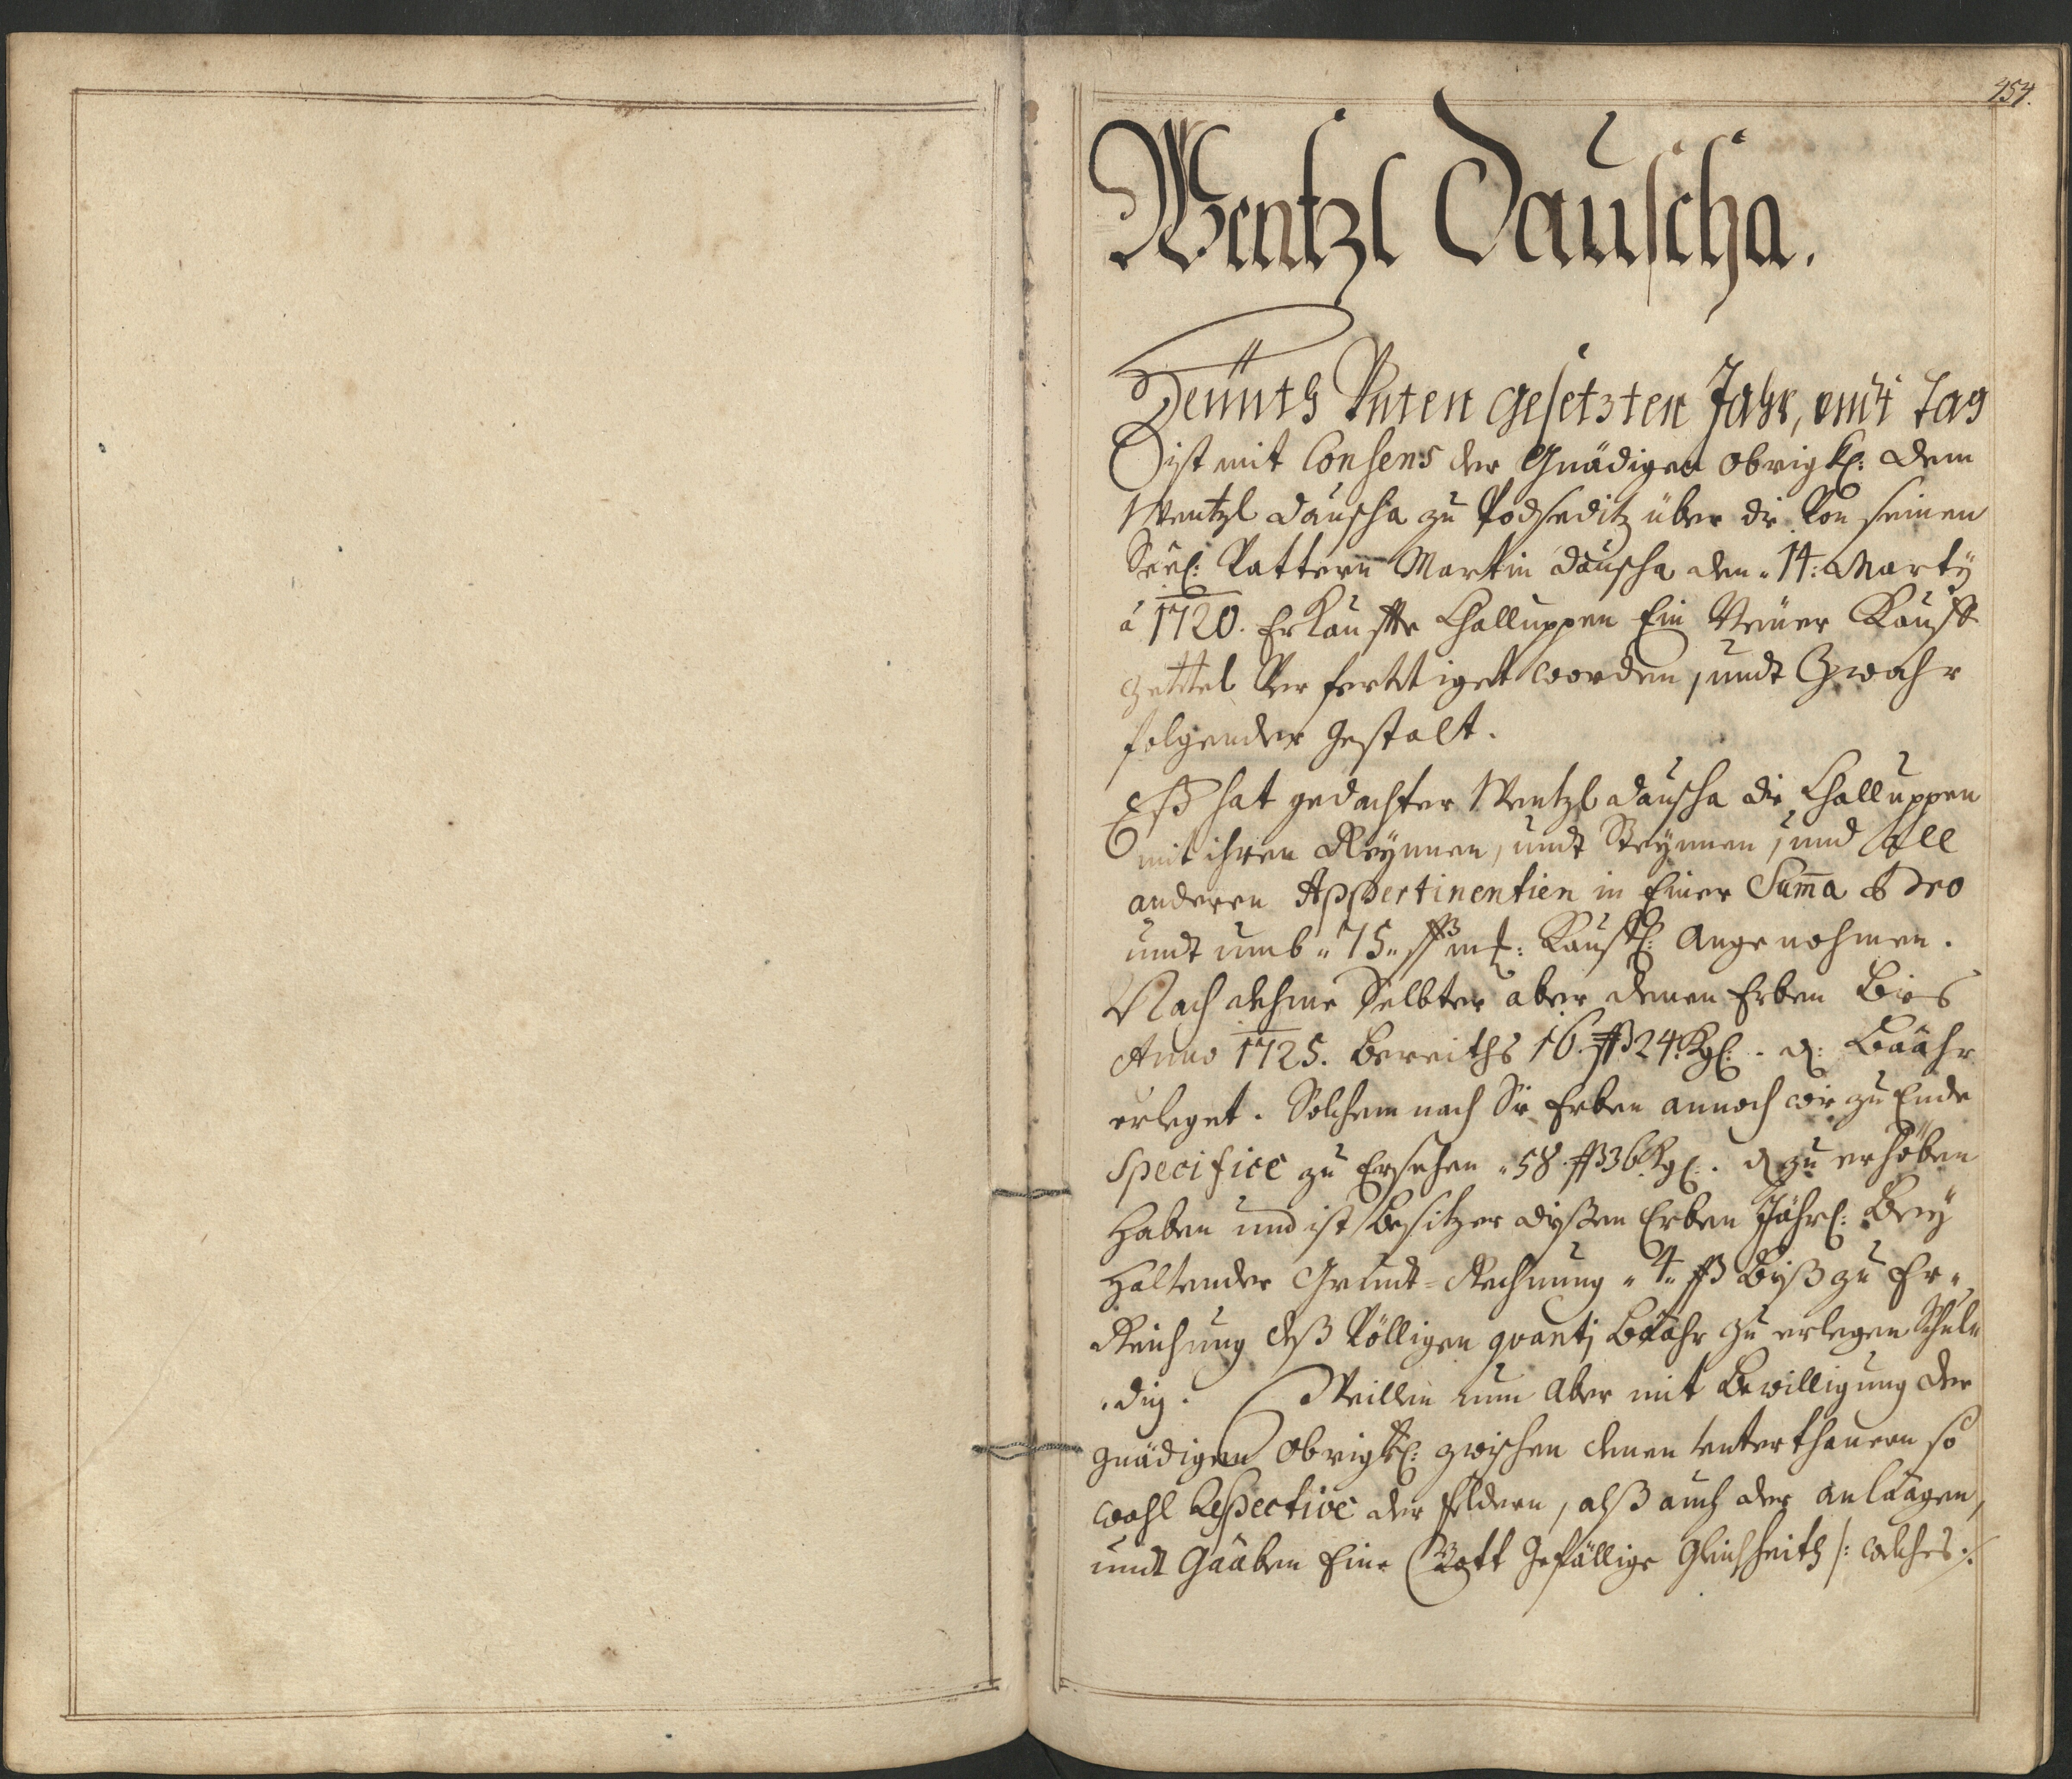 454.
Wentzl Dauscha.
Heünth Unten gesetzten Jahr, undt Tag
ist mit Consens der Gnädigen Obrigkl: dem
Wentzl Dauscha zu Podseditz über die Von seinen
Seel: Vattern Martin Dauscha den 14: Marty
a 1720. Erkauffte Challuppen Ein Neüer Kauff
zettel Verferttiget worden, undt Zwahr
folgender gestalt.
Eß hat gedachter Wentzl Dauscha die Challuppen
mit ihren Reynnen, undt Steynnen, und all
anderen Appertinentien in Einer Suma pro
undt umb „75„ ßß mß: Kauffl: Angenohmen.
Nach dehme Selbter aber denen Erben Bies
Anno 1725. bereiths 16 ßß 24 Kgl: - d: Baahr
erleget. Solchem nach Sie Erben annoch wie zu Ende
Specifice zu Ersehen „58 ßß 36 Kgl: . d zu erhöben
haben und ist besitzer dißen Erben Jährl: Bey
haltender Grundt-Rechnung „4„ ßß biß zu Er„
Reichung deß Völligen quanti baahr zu erlegen Schul„
„dig. Weillen nun Aber mit Bewilligung der
gnädigen Obrigkl: zwischen denen unterthanen so
wohl Respective der feldern, alß auch der anlaagen,
undt Gaaben Eine Gott Gefällige Gleichheith /: welches ./.